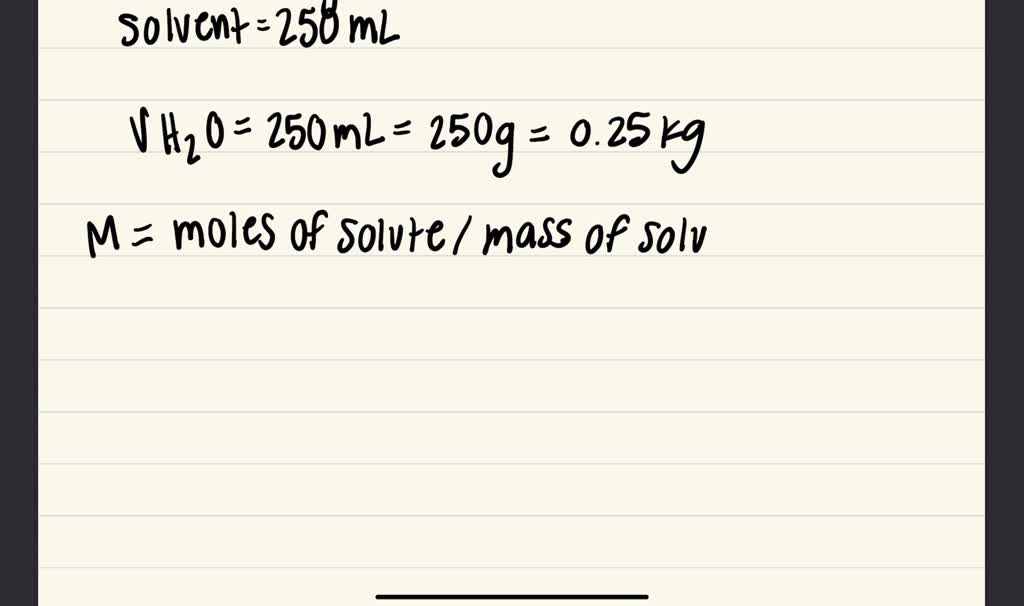 solvent = 250 mL
VH₂O = 250mL = 250g = 0.25 kg
M = moles of solute / mass of solv